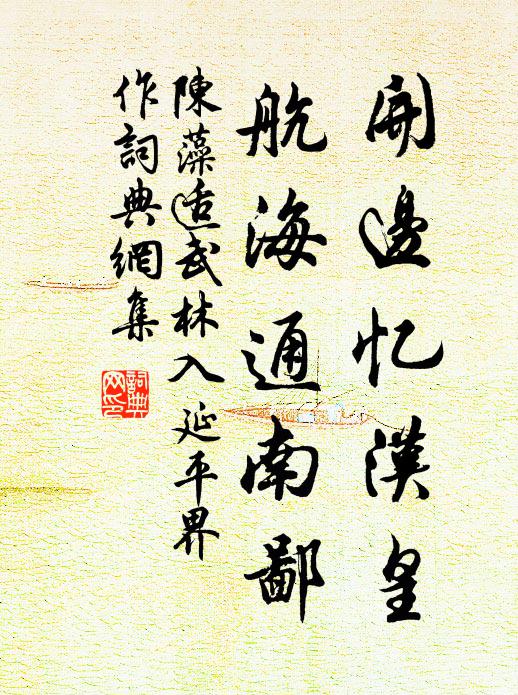 開邊忆漢皇
航海通南鄙
陳藻适武林入延平界
作詞典網集
詞典網印